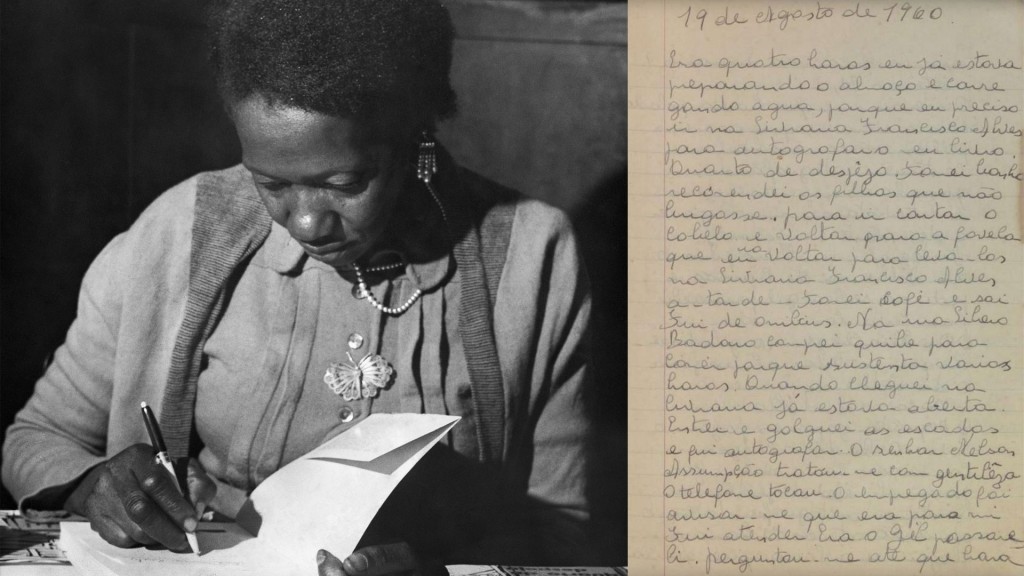 19 de Agosto de 1960.
Era quatro horas eu já estava
preparando o almoço e carre
gando agua, porque eu preciso
ir na Livraria Francisco Alves
para autografar o eu livro.
Quanto de desjejo.
recomendei os filhos que não
brigasse. para ir cortar o
cabelo e voltar para a favela
que eu ia voltar para leva-los
na Livraria Francisco Alves
a tarde. Tomei café e sai
Fui de onibus. Na rua Libero
Badaro comprei quibe para
comer porque sustenta varias
horas. Quando cheguei na
livraria já estava aberta.
Entrei e galguei as escadas
e fui autografar. O senhor Nelson
Assumpção tratou-me com gentilêza
O telefone tocou. O empregado foi
avisar-me que era para mi
Fui atender. Era o Gil passare-
li. perguntou-me até que hora